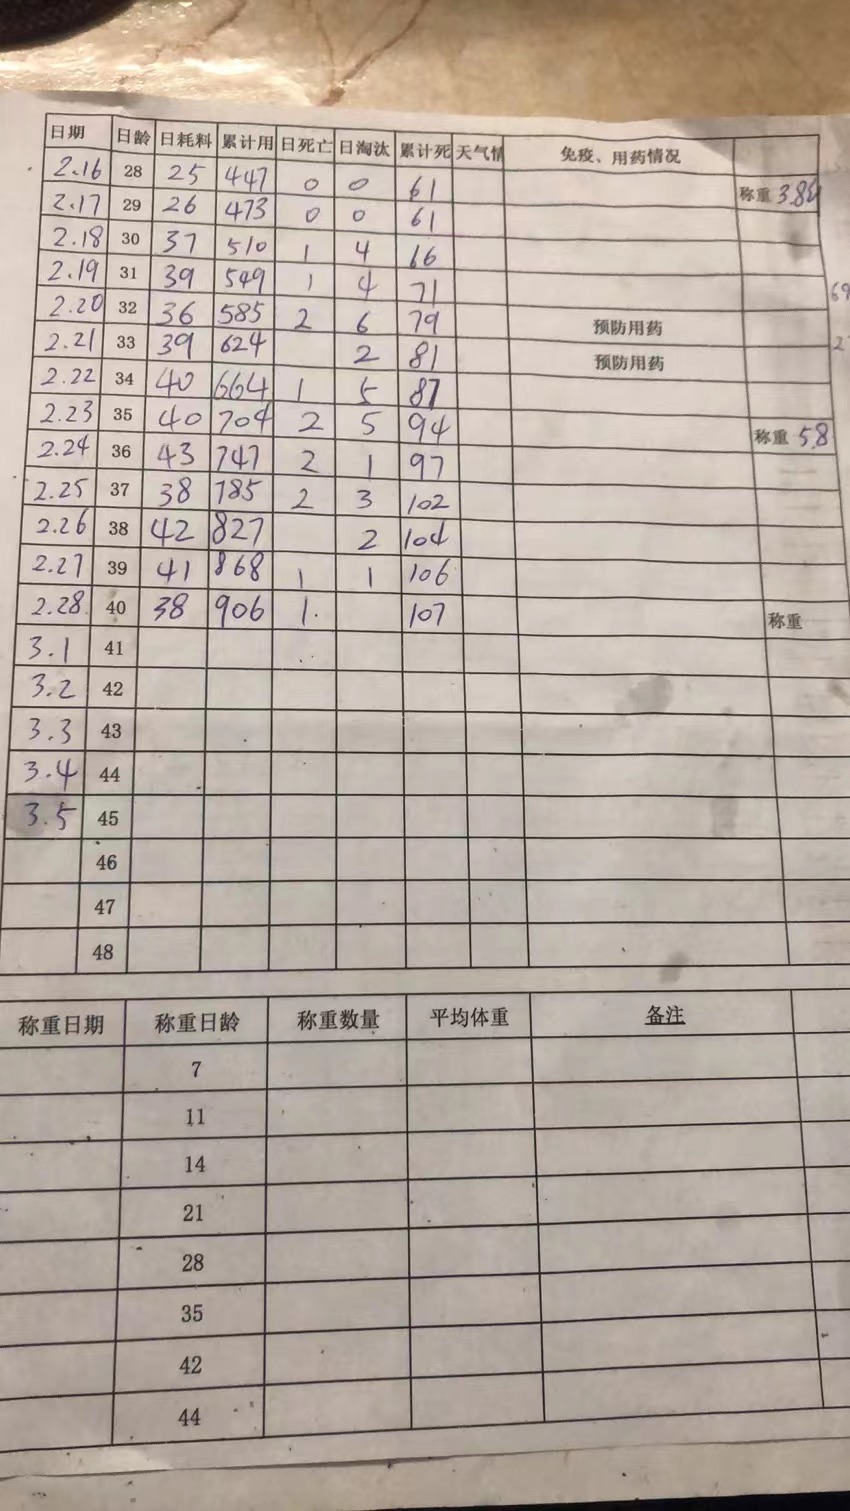 日期 日龄 日耗料 累计用 日死亡 日淘汰 累计死 天气情 免疫、用药情况
2.16 28 25 447 0 0 61
2.17 29 26 473 0 0 61 称重
2.18 30 37 510 1 4 66
2.19 31 39 549 1 4 71
2.20 32 36 585 2 6 79 预防用药
2.21 33 39 624 2 81 预防用药
2.22 34 40 664 1 5 87
2.23 35 40 704 2 5 94 称重 5.8
2.24 36 43 747 2 1 97
2.25 37 38 785 2 3 102
2.26 38 42 827 2 104
2.27 39 41 868 1 1 106
2.28 40 38 906 1 107 称重
3.1 41
3.2 42
3.3 43
3.4 44
3.5 45
46
47
48
称重日期 称重日龄 称重数量 平均体重 备注
7
11
14
21
28
35
42
44